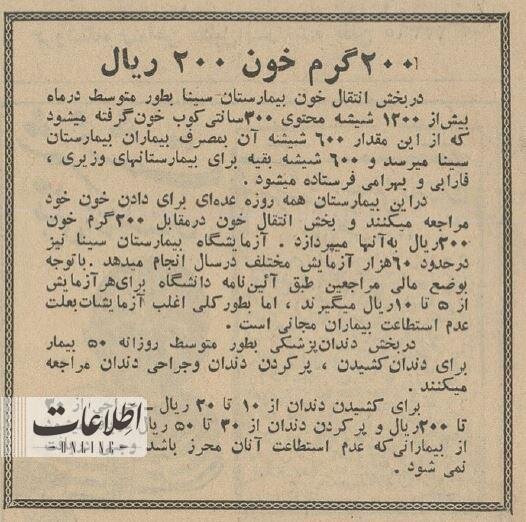 ۲۰۰گرم خون ۲۰۰ ریال
دربخش انتقال خون بیمارستان سینا بطور متوسط درماه
بیش‌از ۱۲۰۰ شیشه محتوی ۳۰۰سانتی‌کوب خون‌گرفته میشود
که از این مقدار ۶۰۰ شیشه آن بمصرف بیماران بیمارستان
سینا میرسد و ۶۰۰ شیشه بقیه برای بیمارستانهای وزیری ،
فارابی و بهرامی فرستاده میشود .
دراین بیمارستان همه روزه عده‌ای برای دادن خون خود
مراجعه میکنند و بخش انتقال خون درمقابل ۲۰۰گرم خون
۲۰۰ریال به‌آنها میپردازد . آزمایشگاه بیمارستان سینا نیز
درحدود ۶۰هزار آزمایش مختلف درسال انجام میدهد .باتوجه
بوضع مالی مراجعین طبق آئین‌نامه دانشگاه برای‌هرآزمایش
از ۵ تا ۱۰ریال میگیرند ، اما بطورکلی اغلب آزمایشات‌بعلت
عدم استطاعت بیماران مجانی است .
دربخش دندان‌پزشکی بطور متوسط روزانه ۵۰ بیمار
برای دندان‌کشیدن ، پرکردن دندان وجراحی دندان مراجعه
میکنند .
برای کشیدن دندان از ۱۰ تا ۲۰ ریال ـ جراحی از ۳۰
تا ۲۰۰ریال و پرکردن دندان از ۳۰ تا ۵۰ ریال
از بیمارانی‌که عدم استطاعت آنان محرز باشد وجهی دریافت
نمی شود .
اطلاعات